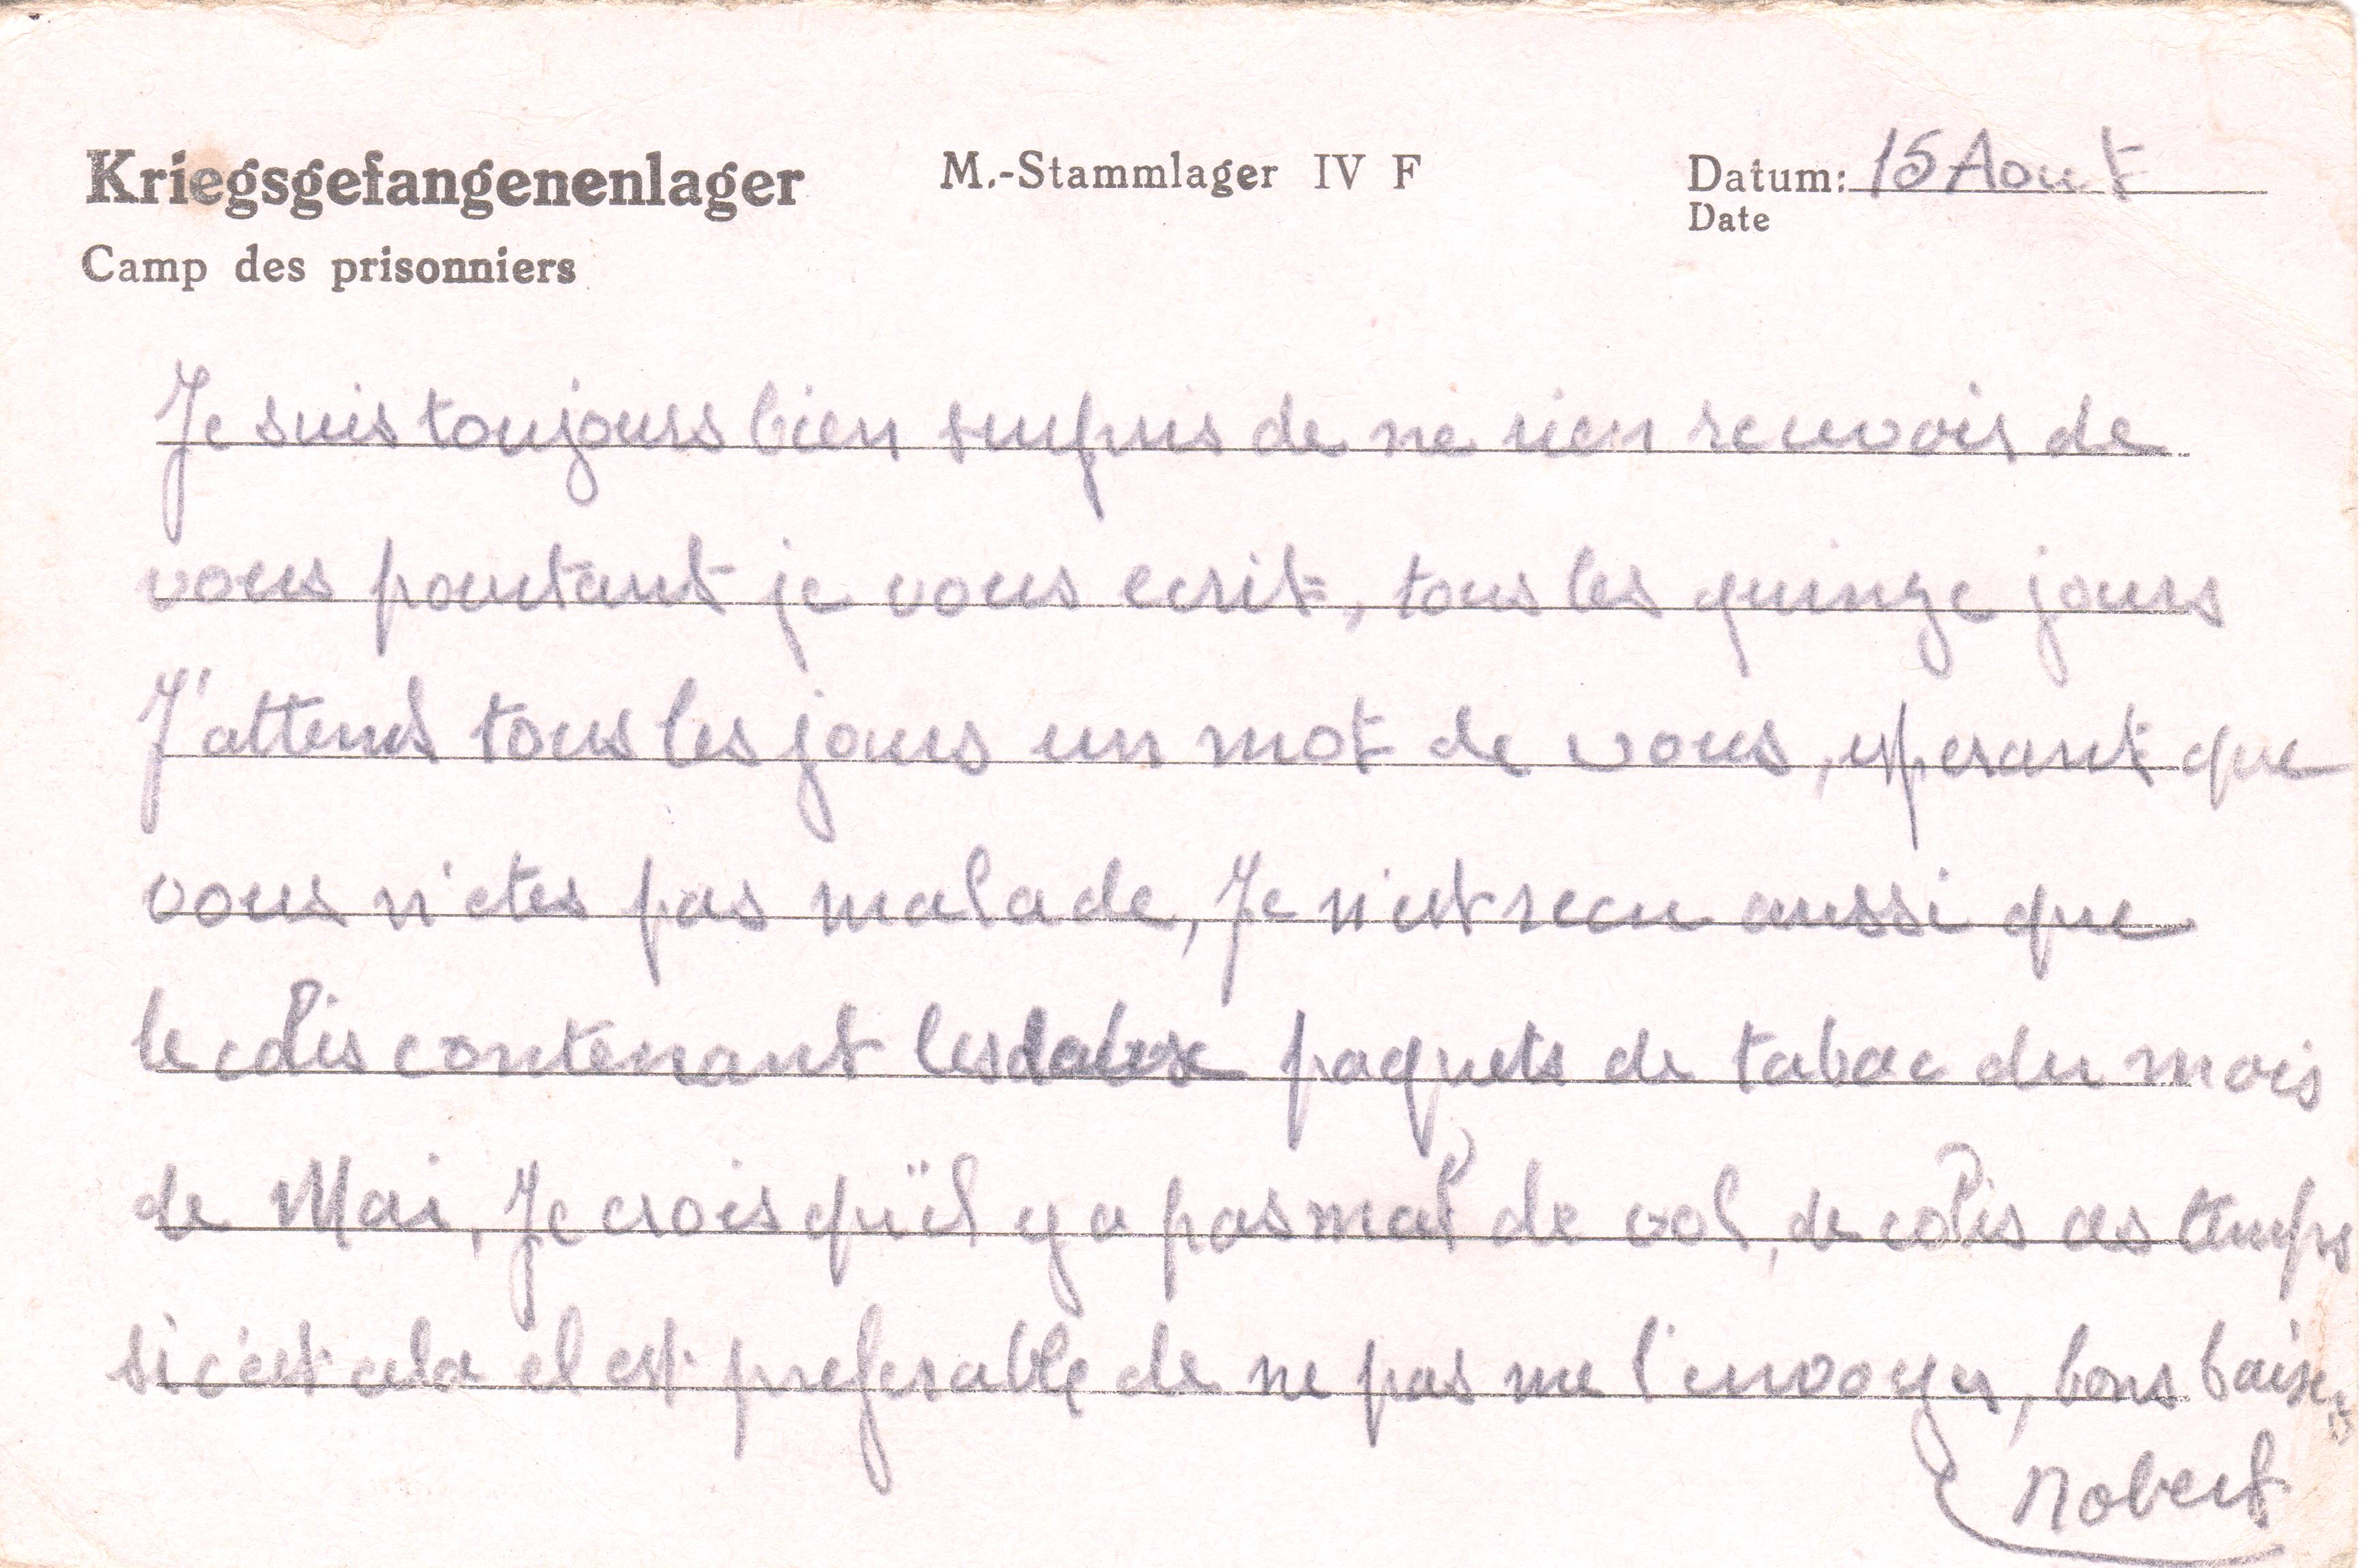 Kriegsgefangenenlager M.-Stammlager IV F Datum: 15 Aout
Camp des prisonniers Date
Je suis toujours bien surpris de ne rien recevoir de
vous pourtant je vous ecrit, tous les quinze jours
J'attend tous les jours un mot de vous, esperant que
vous n'etes pas malade, Je n'est recu aussi que
le colis contenant les deux paquets de tabac du mois
de Mai, Je crois qu'il y a pas mal de vol, de colis ces temps
si c'est cela il est preferable de ne pas me l'envoyer, bons baisers
Robert